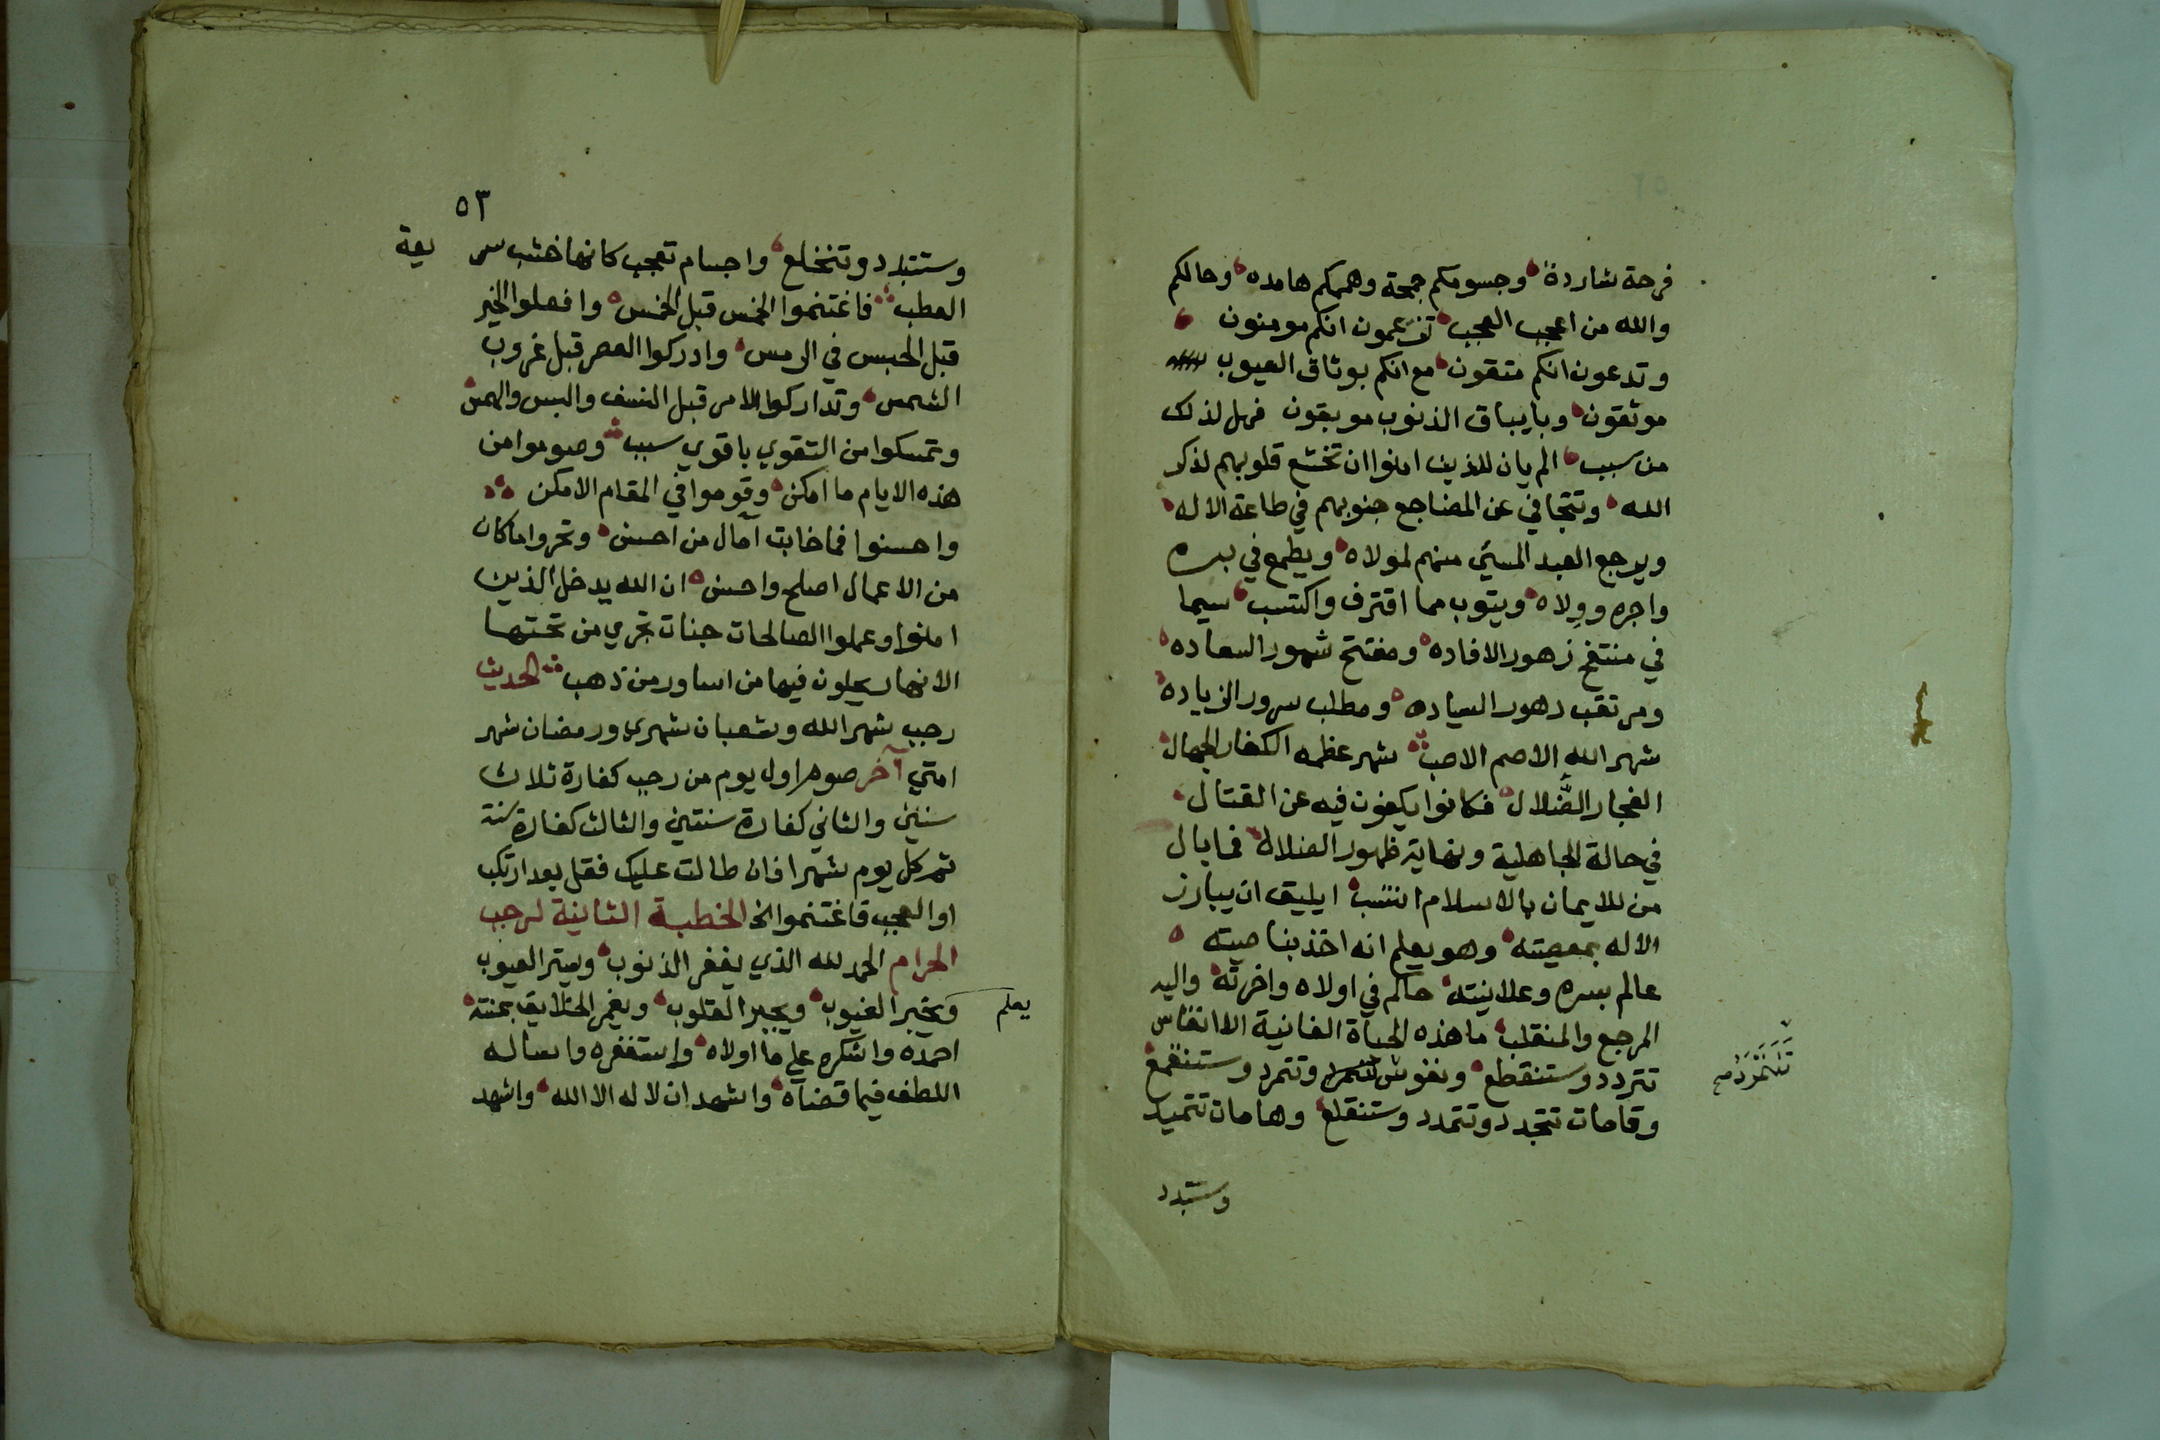 فرحة شاردة وجسومكم جمحة وهممكم هامده وحالكم
والله من اعجب العجب تزعمون انكم مومنون
وتدعون انكم متقون مع انكم بوثاق العيوب
موثقون وبايباق الذنوب موبقون فهل لذلك
من سبب الم يان للذين امنوا ان تخشع قلوبهم لذكر
الله وتتجافي عن المضاجع جنوبهم في طاعة الاله
ويرجع العبد المسيئ منهم لمولاه ويطمع في بره
واجره وولاه ويتوب مما اقترف واكتسب سيما
في منتفح زهور الافاده ومفتتح شهور السعاده
ومرتقب دهور السياده ومطلب سرور الزياده
شهر الله الاصم الاصب شهر عظمه الكفار الجهال
الفجار الضلال فكانوا يكفون فيه عن القتال
في حالة الجاهلية ونهاية ظهور الضلالة فما بال
من للايمان بالاسلام انتسب ايليق ان يبارز
الاله بمعصيته وهو يعلم انه اخذ بناصيته
عالم بسره وعلانيته حاكم في اولاه واخرته واليه
المرجع والمنقلب ما هذه الحياة الفانية الا انفاس
تتردد وستنقطع ونفوس وتتمرد وستنقمع
وقامات تتجدد وتتمدد وستنقلع وهامات تتميد
وستبدد
٥٣
وستتبدد وتنخلع واجسام تعجب كانها خشب سريعة
العطب فاغتنموا الخمس قبل الخمس وافعلوا الخير
قبل الحبس في الرمس وادركوا العصر قبل غروب
الشمس وتداركوا الامر قبل النسف والبس والهمس
وتمسكوا من التقوي باقوي سبب وصوموا من
هذه الايام ما امكن وقوموا في المقام الامكن
واحسنوا فما خابت آمال من احسن وتحروا ما كان
من الاعمال اصلح واحسن ان الله يدخل الذين
امنوا وعملوا الصالحات جنات تجري من تحتها
الانهار يحلون فيها من اساور من ذهب الحديث
رجب شهر الله وشعبان شهري ورمضان شهر
امتي آخر صوم اول يوم من رجب كفارة ثلاث
سنين والثاني كفارة سنتين والثالث كفارة سنة
ثم كل يوم شهرا فان طالت عليك فقل بعد ارتكب
او العجب فاغتنموا الخ الخطبة الثانية لرجب
الحرام الحمد لله الذي يغفر الذنوب ويستر العيوب
ويخبر الغيوب ويجبر القلوب ويغمر الخلايق بمنته
يعلم
احمده واشكره علي ما اولاه واستغفره واساله
اللطف فيما قضاه واشهد ان لا اله الا الله واشهد